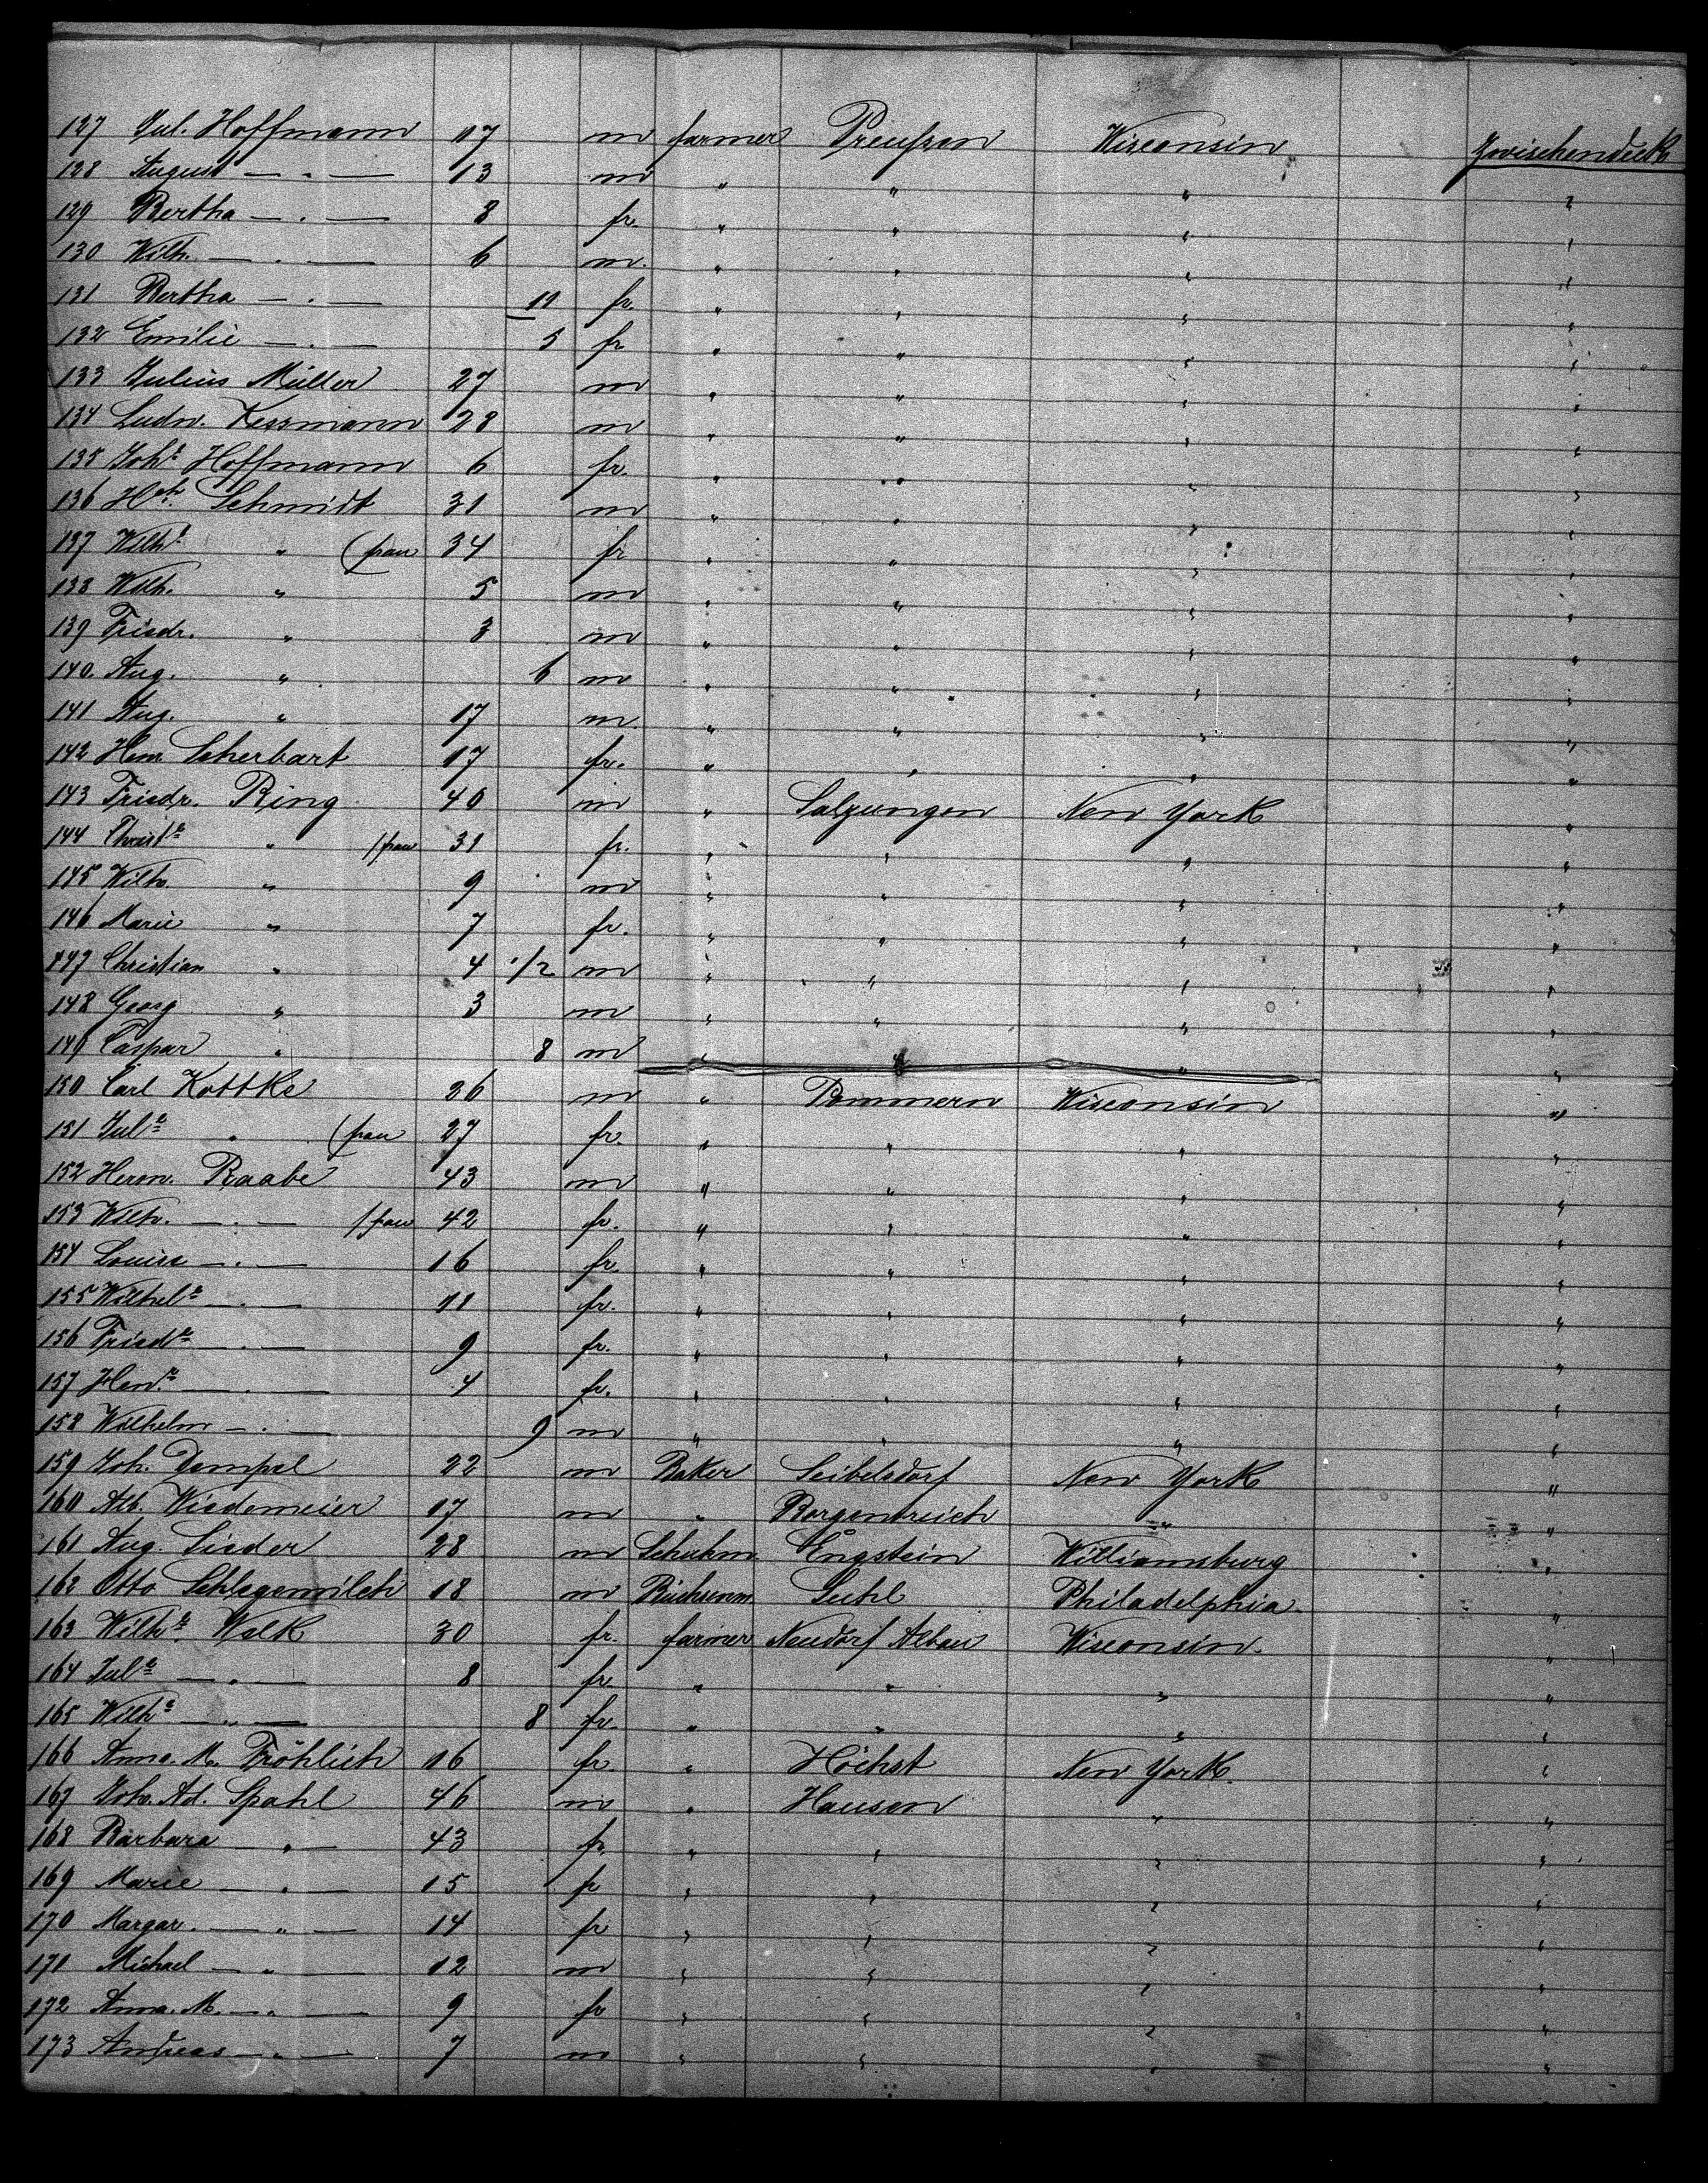 127 Jul. Hoffmann 17 m farmer Preußen Wisconsin Zwischendeck
128 August — " — 13 m " " " "
129 Bertha — " — 8 fr. " " " "
130 Wilh. — " — 6 m. " " " "
131 Bertha — " — 11 fr. " " " "
132 Emilie — " — 5 fr " " " "
133 Julius Müller 27 m " " " "
134 Ludw. Kessmann 28 m " " " "
135 Joh.e Hoffmann 6 fr. " " " "
136 Hch. Schmidt 31 m " " " "
137 Wilh.e " (frau 34 fr " " " "
138 Wilh. " 5 m " " " "
139 Friedr. " 3 m " " " "
140. Aug. " 6 m " " " "
141 Aug. " 17 m " " " "
142 Herm Scherbart 17 fr. " " " "
143 Friedr. Ring 40 m " Salzungen New York "
144 Christ.e " /frau 31 fr. " " " "
145 Wilh. " 9 m " " " "
146 Marie " 7 fr. " " " "
147 Christian " 4 1/2 m " " " "
148 Georg " 3 m " " " "
149 Caspar " 8 m " " " "
150 Carl Kottke 26 m " Pommern Wisconsin "
151 Jul.e " (frau 27 fr. " " " "
152 Herm. Raabe 43 m " " " "
153 Wilh. — " — /frau 42 fr. " " " "
154 Louise — " — 16 fr. " " " "
155 Wilhel.e — " — 11 fr. " " " "
156 Fried.e — " — 9 fr. " " " "
157 Hen.e — " — 4 fr. " " " "
158 Wilhelm — " — 9 m " " " "
159 Joh. Dempel 22 m Baker Seibelsdorf New York "
160 Alb. Wiedemeier 17 m " Borgentreich " "
161 Aug. Sieder 28 m Schuhm. Engstein Williamsburg "
162 Otto Schlegemilch 18 m Büchsenm. Suhl Philadelphia "
163 Wilh.e Welk 30 fr. farmer Neudorf Wisconsin. "
164 Jul.e — " — 8 fr. " " " "
165 Wilh.e — " — 8 fr. " " " "
166 Anna. M. Fröhlich 16 fr. " Höchst New York. "
167 Joh. Ad. Spahl 46 m " Hausen " "
168 Barbara — " — 43 fr. " " " "
169 Marie — " — 15 fr " " " "
170 Margar. — " — 14 fr " " " "
171 Michael — " — 12 m " " " "
172 Anna. M. — " — 9 fr " " " "
173 Andreas — " — 7 m " " " "